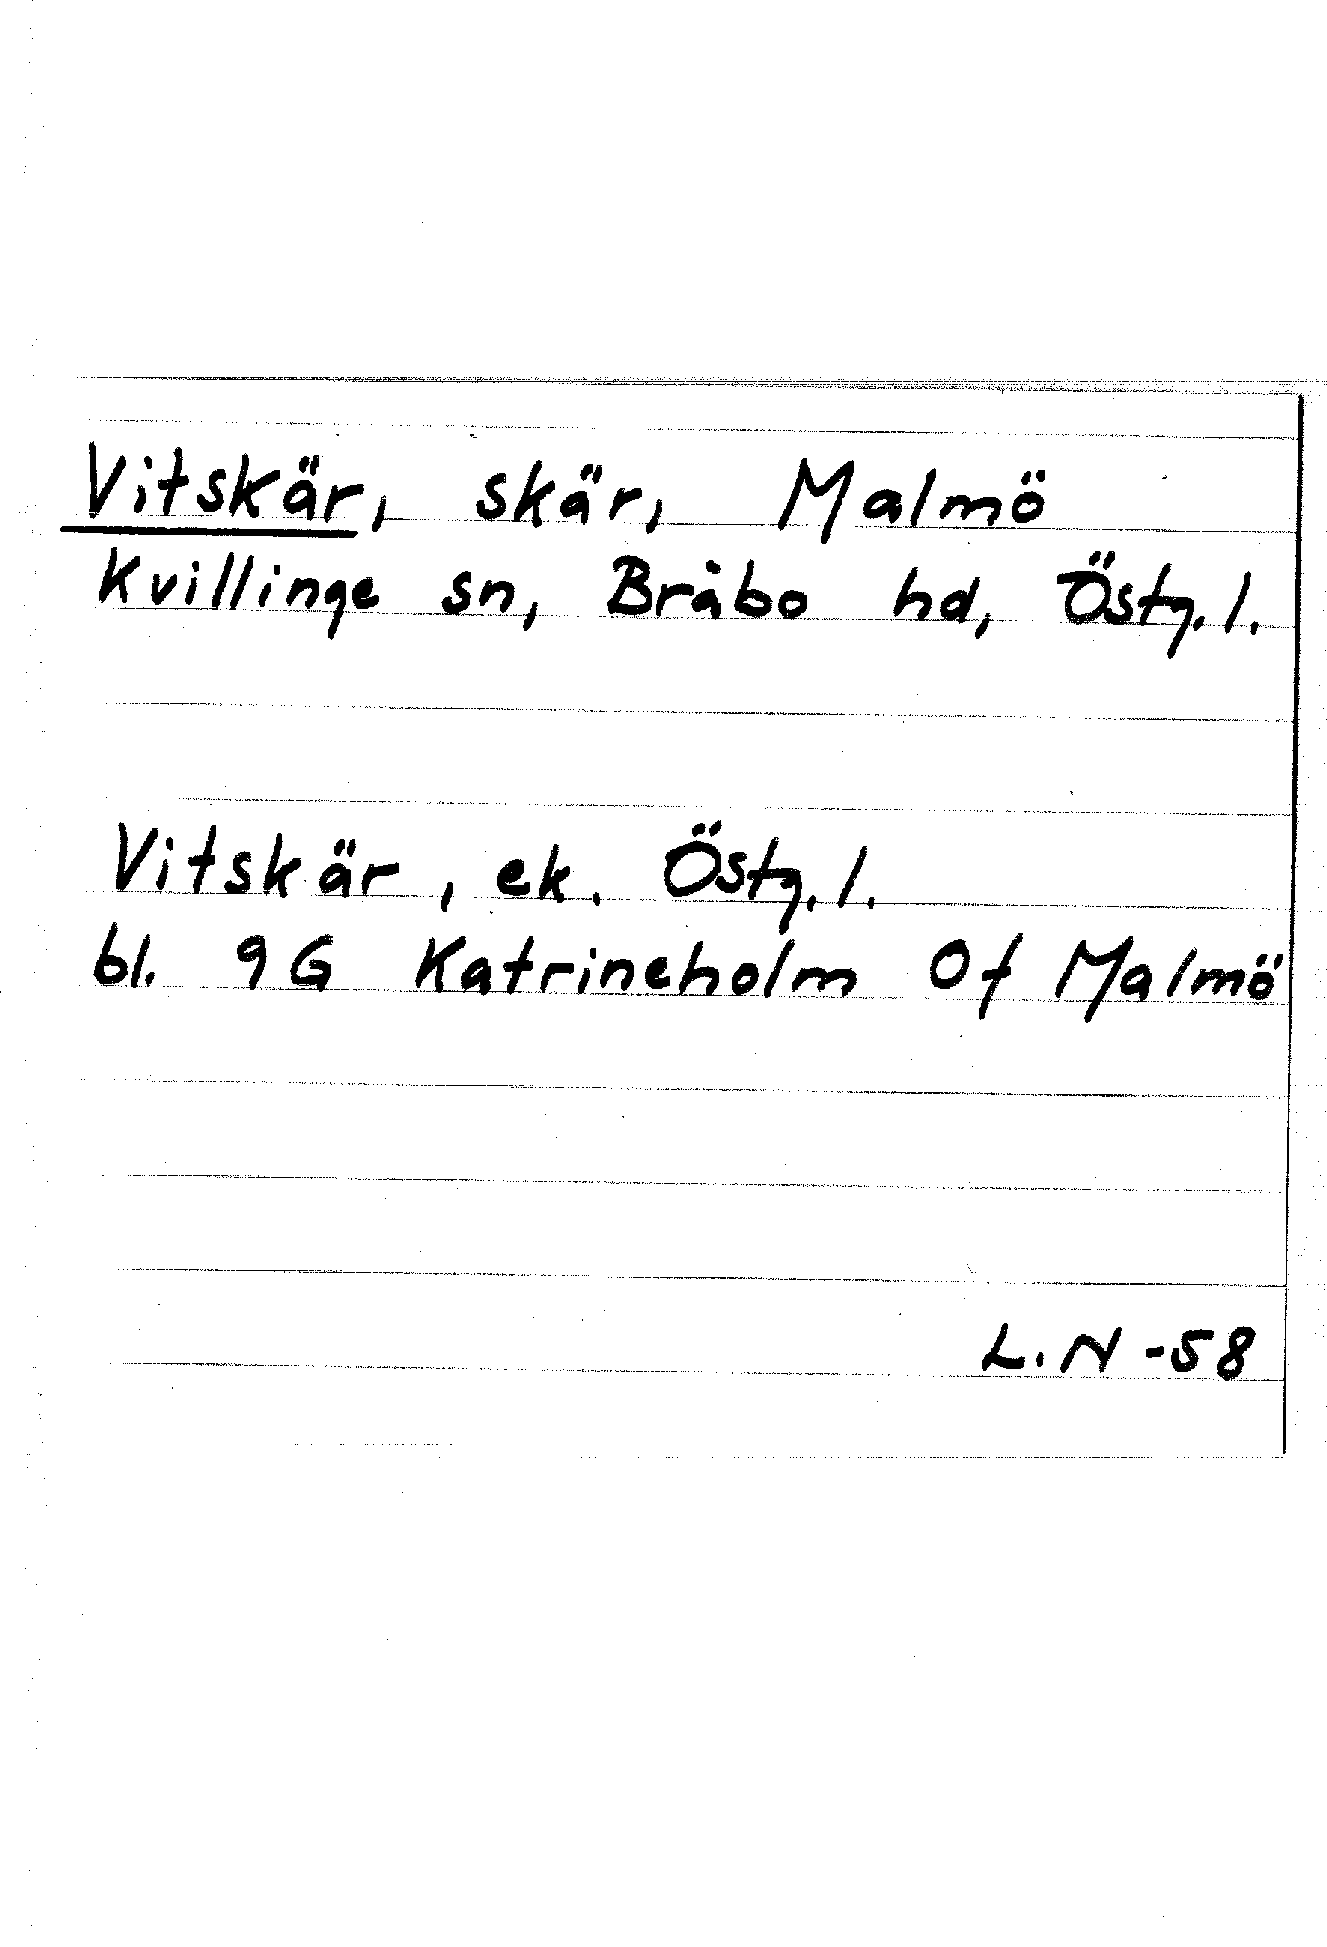 Vitskär, skär, Malmö
Kvillinge sn, Bråbo hd, Östg. l.
Vitskär, ek. Östg. l.
bl. 9G Katrineholm Of Malmö
L. N -58